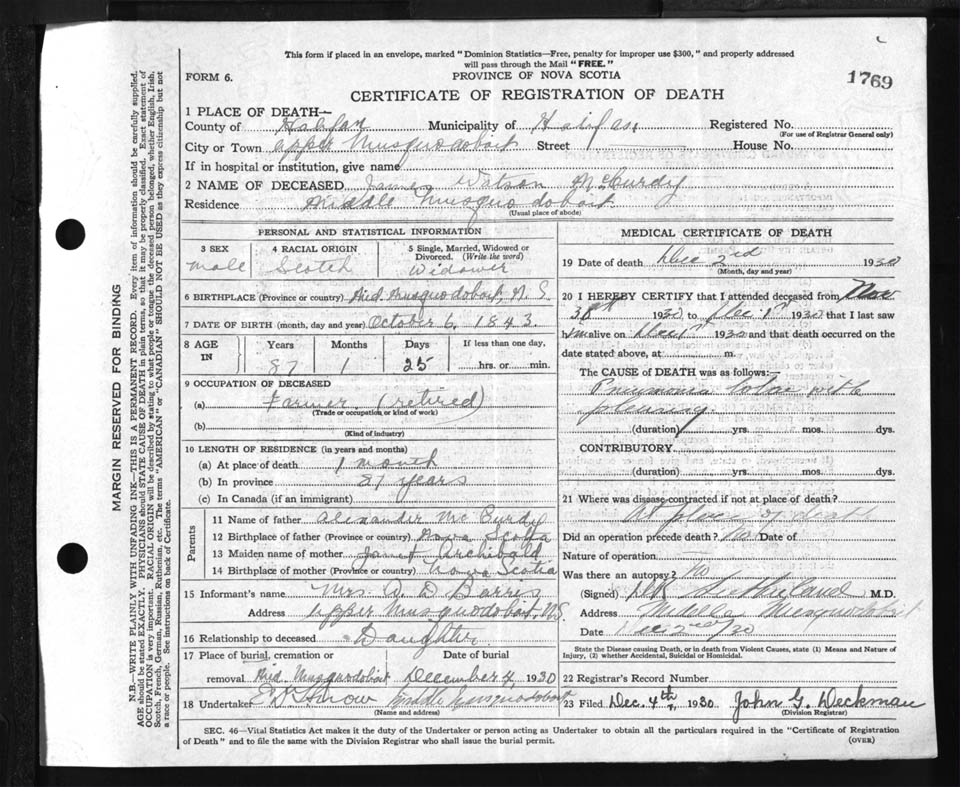 This form if placed in an envelope, marked "Dominion Statistics—Free, penalty for improper use $300," and properly addressed
will pass through the Mail "FREE."
FORM 6. PROVINCE OF NOVA SCOTIA 1769
CERTIFICATE OF REGISTRATION OF DEATH
1 PLACE OF DEATH—
County of Halifax Municipality of Halifax Registered No.
(For use of Registrar General only)
City or Town Upper Musquodoboit Street House No.
If in hospital or institution, give name
2 NAME OF DECEASED James Watson McCurdy
Residence Middle Musquodoboit
(Usual place of abode)
PERSONAL AND STATISTICAL INFORMATION
3 SEX 4 RACIAL ORIGIN 5 Single, Married, Widowed or
Divorced. (Write the word)
Male Scotch Widower
6 BIRTHPLACE (Province or country) Mid Musquodoboit, N.S.
7 DATE OF BIRTH (month, day and year) October 6, 1843.
8 AGE IN Years Months Days If less than one day,
87 1 25 hrs. or min.
9 OCCUPATION OF DECEASED
(a) Farmer (retired)
(Trade or occupation or kind of work)
(b)
(Kind of industry)
10 LENGTH OF RESIDENCE (in years and months)
(a) At place of death 1 month
(b) In province 87 years
(c) In Canada (if an immigrant)
Parents
11 Name of father Alexander McCurdy
12 Birthplace of father (Province or country) Nova Scotia
13 Maiden name of mother Janet Archibald
14 Birthplace of mother (Province or country) Nova Scotia
15 Informant's name Mrs. A. D.
Address Upper Musquodoboit N.S.
16 Relationship to deceased Daughter
17 Place of burial, cremation or Date of burial
removal Mid. Musquodoboit December 4, 1930
18 Undertaker Middle Musquodoboit
(Name and address)
MEDICAL CERTIFICATE OF DEATH
19 Date of death Dec 2nd 1930
(Month, day and year)
20 I HEREBY CERTIFY that I attended deceased from Nov
30th 1930 to Dec 1st 1930 that I last saw
him alive on Dec 1st 1930 and that death occurred on the
date stated above, at m.
The CAUSE OF DEATH was as follows:—
Pneumonia lobar with
pleurisy
(duration) yrs. mos. dys.
CONTRIBUTORY
(duration) yrs. mos. dys.
21 Where was disease contracted if not at place of death?
At place of death
Did an operation precede death? No Date of
Nature of operation
Was there an autopsy? No
(Signed) M.D.
Address Middle Musquodoboit
Date Dec 2nd/30
State the Disease causing Death, or in death from Violent Causes, state (1) Means and Nature of
Injury, (2) whether Accidental, Suicidal or Homicidal.
22 Registrar's Record Number
23 Filed Dec. 4th, 1930. John G. Deckman
(Division Registrar)
SEC. 46—Vital Statistics Act makes it the duty of the Undertaker or person acting as Undertaker to obtain all the particulars required in the "Certificate of Registration
of Death" and to file the same with the Division Registrar who shall issue the burial permit. (OVER)
MARGIN RESERVED FOR BINDING
N.B.—WRITE PLAINLY WITH UNFADING INK—THIS IS A PERMANENT RECORD. Every item of information should be carefully supplied.
AGE should be stated EXACTLY. PHYSICIANS should STATE CAUSE OF DEATH in plain terms, so that it may be properly classified. Exact statement of
OCCUPATION is very important. RACIAL ORIGIN will be described by stating to what people or tongue the deceased person belonged, whether English, Irish,
Scotch, French, German, Russian, Ruthenian, etc. The terms "AMERICAN" or "CANADIAN" SHOULD NOT BE USED as they express citizenship but not
a race or people. See instructions on back of Certificate.